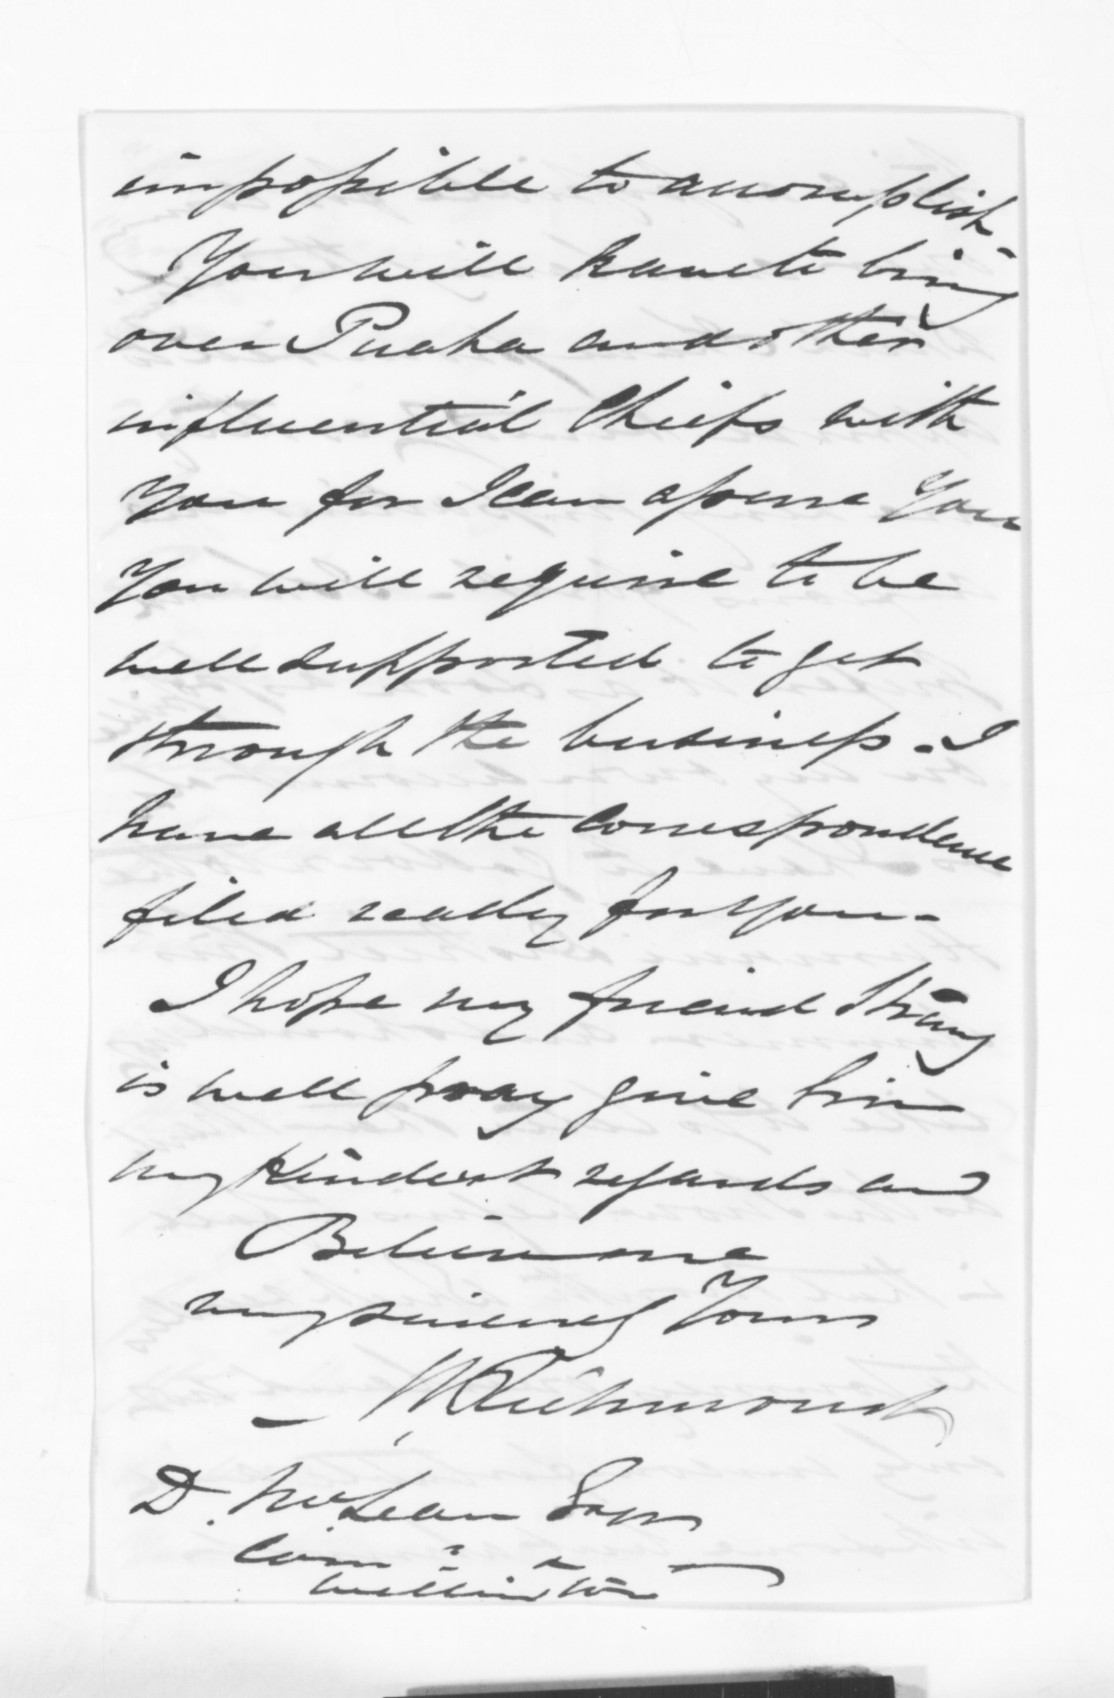 impossible to accomplish-
You will have to bring
over Puaha and other
influential Chiefs with
you for I can assure You
You will require to be
well supported to get
through the business - I
have all the Correspondence
filed ready for you -
I hope my friend Strang
is well pray give him
my kindest regards and
Believe me
very sincerely Yours
M Richmond
D. McLean Esqre
Wellington